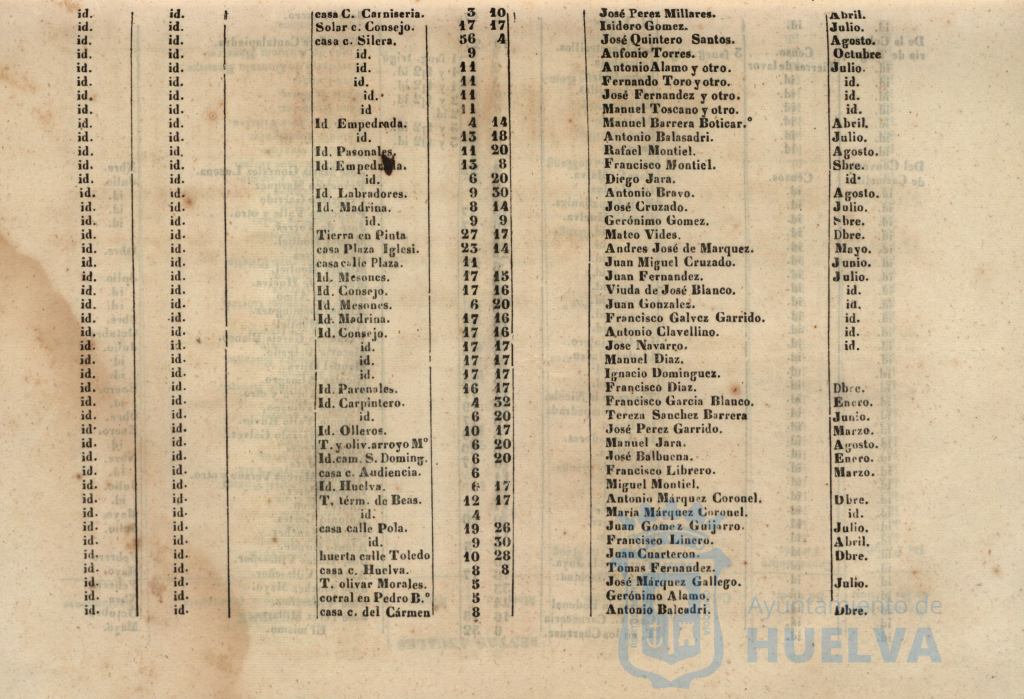 id. id. casa C. Carniseria. 3 10 José Perez Millares. Abril.
id. id. Solar c. Consejo. 17 17 Isidero Gomez. Julio.
id. id. casa c. Silera. 56 4 José Quintero Santos. Agosto.
id. id. id. 9 Antonio Torres. Octubre
id. id. id. 11 Antonio Alamo y otro. Julio.
id. id. id. 11 Fernando Toro y otro. id.
id. id. id. 11 José Fernandez y otro. id.
id. id. id 11 Manuel Toscano y otro. id.
id. id. Id Empedrada. 4 14 Manuel Barrera Boticar.º Abril.
id. id. id. 13 18 Antonio Balasadri. Julio.
id. id. Id. Pasonales. 11 20 Rafael Montiel. Agosto.
id. id. Id. Empedrada. 13 8 Francisco Montiel. Sbre.
id. id. id. 6 20 Diego Jara. id.
id. id. Id. Labradores. 9 30 Antonio Bravo. Agosto.
id. id. Id. Madrina. 8 14 José Cruzado. Julio.
id. id. id. 9 9 Gerónimo Gomez. Sbre.
id. id. Tierra en Pinta 27 17 Mateo Vides. Dbre.
id. id. casa Plaza Iglesi. 23 14 Andres José de Marquez. Mayo.
id. id. casa calle Plaza. 11 Juan Miguel Cruzado. Junio.
id. id. Id. Mesones. 17 15 Juan Fernandez. Julio.
id. id. Id. Consejo. 17 16 Viuda de José Blanco. id.
id. id. Id. Mesones. 6 20 Juan Gonzalez. id.
id. id. Id. Madrina. 17 16 Francisco Galvez Garrido. id.
id. id. Id. Consejo. 17 16 Antonio Clavellino. id.
id. id. id. 17 17 Jose Navarro. id.
id. id. id. 17 17 Manuel Diaz.
id. id. id. 17 17 Ignacio Dominguez.
id. id. Id. Parenales. 16 17 Francisco Diaz. Dbre.
id. id. Id. Carpintero. 4 32 Francisco Garcia Blanco. Enero.
id. id. id. 6 20 Tereza Sanchez Barrera Junio.
id. id. Id. Olleros. 10 17 José Perez Garrido. Marzo.
id. id. T. y oliv. arroyo Mº 6 20 Manuel Jara. Agosto.
id. id. Id. cam. S. Doming. 6 20 José Balbuena. Enero.
id. id. casa c. Audiencia. 6 Francisco Librero. Marzo.
id. id. Id. Huelva. 6 17 Miguel Montiel.
id. id. T. térm. de Beas. 12 17 Antonio Márquez Coronel. Dbre.
id. id. id. 4 María Márquez Coronel. id.
id. id. casa calle Pola. 19 26 Juan Gomez Guijarro. Julio.
id. id. id. 9 30 Francisco Linero. Abril.
id. id. huerta calle Toledo 10 28 Juan Cuarteron. Dbre.
id. id. casa c. Huelva. 8 8 Tomas Fernandez.
id. id. T. olivar Morales. 5 José Márquez Gallego. Julio.
id. id. corral en Pedro B.º 5 Gerónimo Alamo.
id. id. casa c. del Cármen 8 Antonio Balcadri. Dbre.
Ayuntamiento de
HUELVA